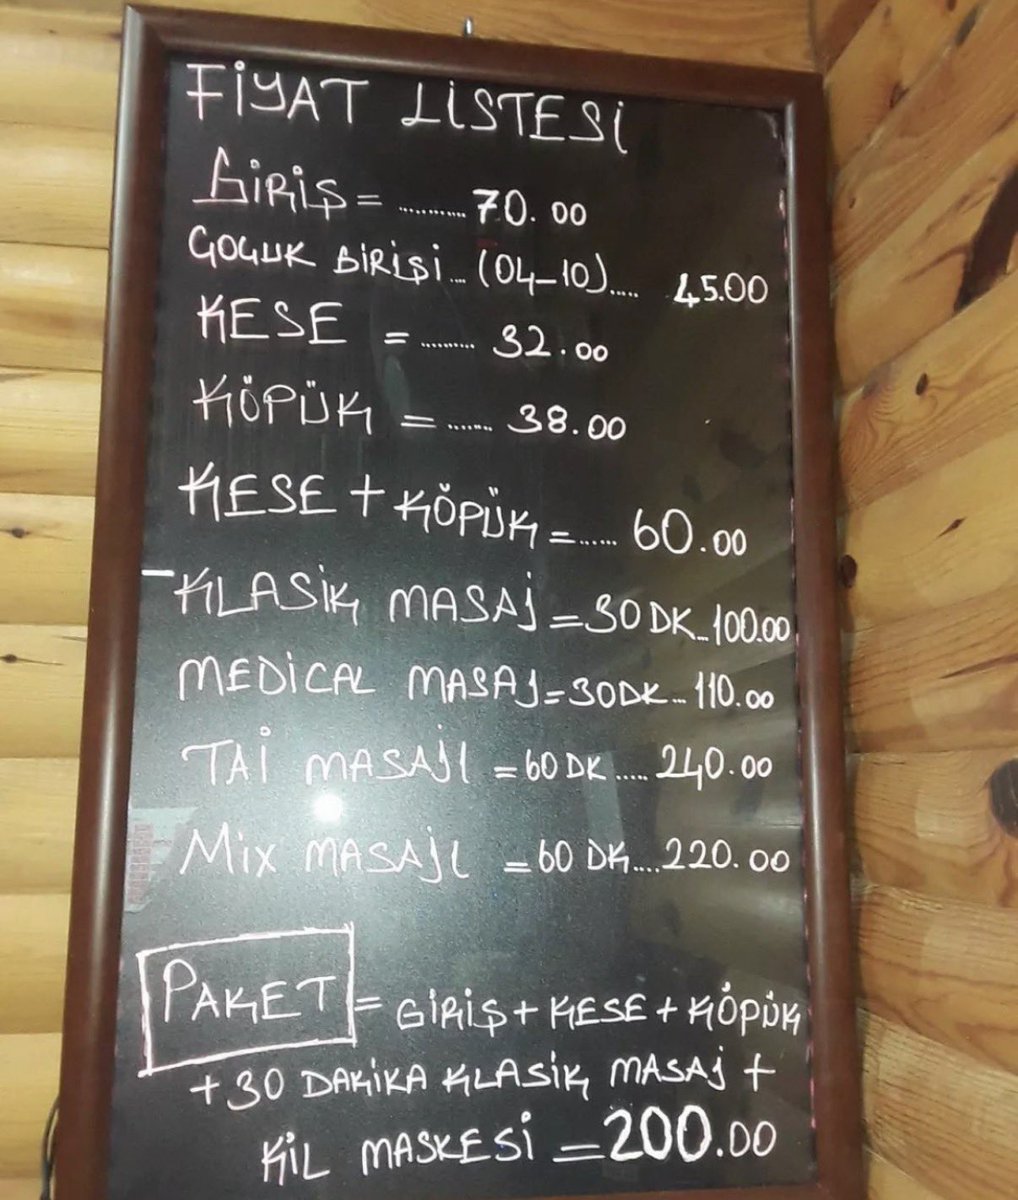 FİYAT LİSTESİ
GİRİŞ = ........... 70.00
ÇOCUK GİRİŞİ... (04-10)..... 45.00
KESE = ......... 32.00
KÖPÜK = ....... 38.00
KESE + KÖPÜK = ...... 60.00
- KLASİK MASAJ = 30 DK... 100.00
MEDİCAL MASAJ = 30 DK... 110.00
TAİ MASAJI = 60 DK ..... 240.00
MİX MASAJI = 60 DK.... 220.00
PAKET = GİRİŞ + KESE + KÖPÜK
+ 30 DAKİKA KLASİK MASAJ +
KİL MASKESİ = 200.00